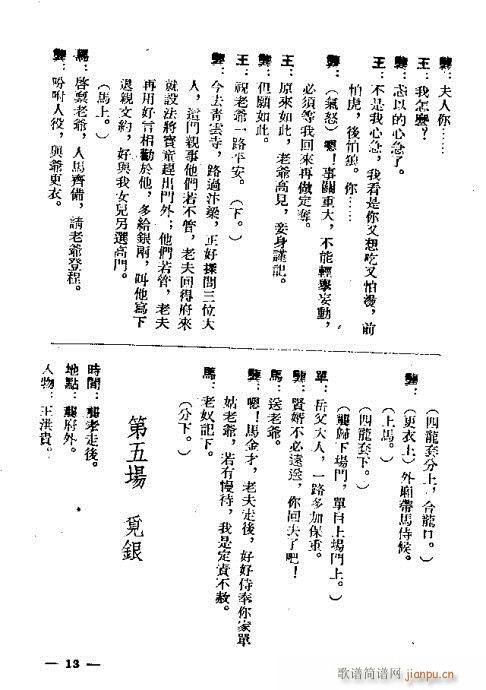 龔：夫人你……
王：我怎麽？
龔：忒以的心急了。
王：不是我心急，我看是你又想吃又怕燙，前
怕虎，後怕狼。你……
龔：（氣怒）嗯！事關重大，不能輕舉妄動，
必須等我回來再做定奪。
王：原來如此，老爺高見，妾身謹記。
龔：但願如此。
王：祝老爺一路平安。（下。）
龔：今去青雲寺，路過汴梁，正好揉問三位大
人，這門親事他們若不管，老夫回得府來
就設法將寶童趕出門外；他們若管，老夫
再用好言相勸於他，多給銀兩，叫他寫下
退親文約，好與我女兒另選高門。
（馬上。）
馬：啓禀老爺，人馬齊備，請老爺登程。
龔：吩咐人役，與爺更衣。
（四龍套分上，合龍口。）
龔：（更衣上）外廂帶馬侍候。
（上馬。）
（四龍套下。）
（龔歸下場門，單自上場門上。）
單：岳父大人，一路多加保重。
龔：賢婿不必遠送，你回去了吧！
馬：送老爺。
龔：嗯！馬金才，老夫走後，好好侍奉你家單
姑老爺，若有慢待，我是定責不赦。
馬：老奴記下。
（分下。）
第五場　覓銀
時間：龔孝走後。
地點：龔府外。
人物：王洪貴。
— 13 —
歌谱简谱网
jianpu.cn